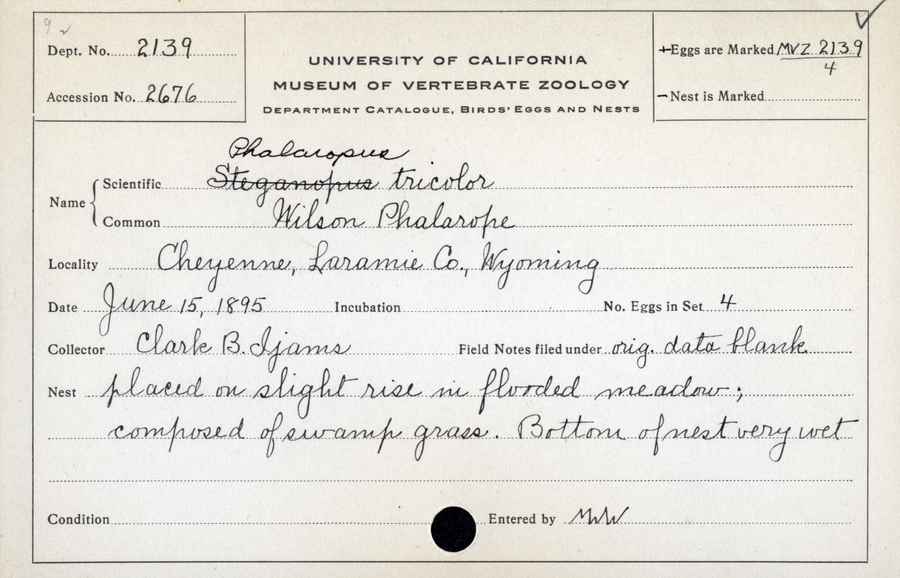 9 ✓
Dept. No. 2139
Accession No. 2676
UNIVERSITY OF CALIFORNIA
MUSEUM OF VERTEBRATE ZOOLOGY
DEPARTMENT CATALOGUE, BIRDS' EGGS AND NESTS
+Eggs are Marked MVZ 2139
4
-Nest is Marked
Phalaropus
Name Scientific Steganopus tricolor
Common Wilson Phalarope
Locality Cheyenne, Laramie Co., Wyoming
Date June 15, 1895 Incubation No. Eggs in Set 4
Collector Clark B. Ijams Field Notes filed under orig. data blank
Nest placed on slight rise in flooded meadow;
composed of swamp grass. Bottom of nest very wet
Condition Entered by